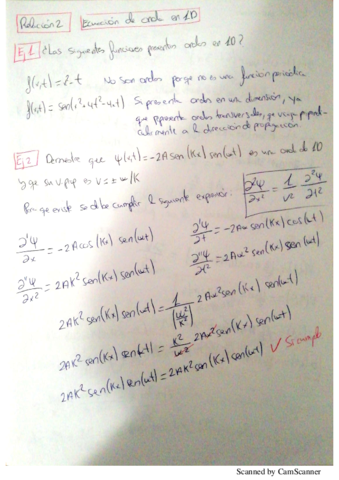 Relación 2 Ecuación de onda en 1D
Ej.1 ¿Las siguientes funciones presentan ondas en 1D?
No son ondas porque no es una funcion periodica
Si presenta ondas en una dimensión, ya
que presenta ondas transversales,
a la direccion de propagacion.
Ej.2 Demuestre que ψ(x,t) = -2A sen(Kx) sen(ωt) es una ond. de 1D
y que su v.p es v = ± ω/K
Para que exista se debe cumplir la siguiente expresion: ∂²ψ/∂x² = 1/v² ∂²ψ/∂t²
∂ψ/∂x = -2AK cos(Kx) sen(ωt) ∂ψ/∂t = -2Aω sen(Kx) cos(ωt)
∂²ψ/∂x² = 2AK² sen(Kx) sen(ωt) ∂²ψ/∂t² = 2Aω² sen(Kx) sen(ωt)
2AK² sen(Kx) sen(ωt) = 1/(ω²/K²) 2Aω² sen(Kx) sen(ωt)
2AK² sen(Kx) sen(ωt) = K²/ω² 2Aω² sen(Kx) sen(ωt)
2AK² sen(Kx) sen(ωt) = 2AK² sen(Kx) sen(ωt) ✓ Si cumple
Scanned by CamScanner